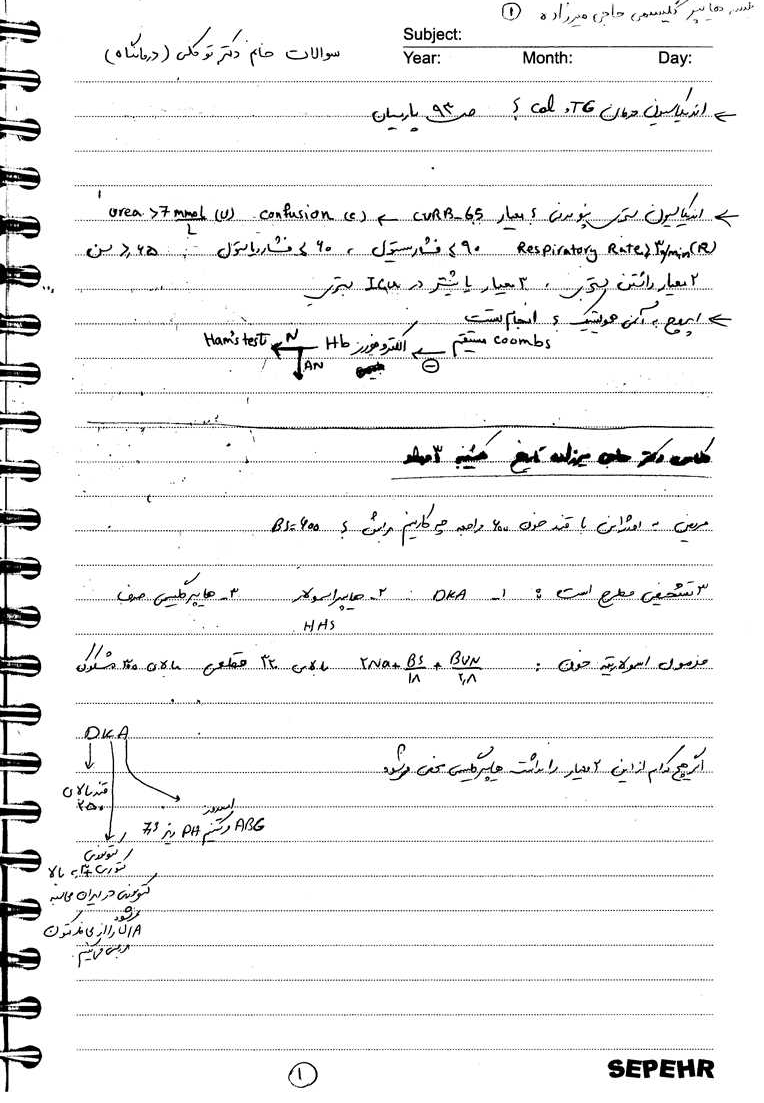 جزوه هایپر گلیسمی حاجی میرزاده ①
Subject:
Year: Month: Day:
سوالات خانم دکتر توکلی (درمانگاه)
← اندیکاسیون درمان TG و Col ؟ صـ ۹۳ پارسیان
← اندیکاسیون بستری پنومونی ؟ معیار CURB-65 ← confusion (c) urea >7 mmol/L (U)
Respiratory Rate ≥ ۳۰/min (R) ۹۰ ≥ فشار سیستول ، ۶۰ ≥ فشار دیاستول ۶۵ ≤ سن
۲ معیار داشتن بستری ، ۳ معیار یا بیشتر در ICU بستری
← اپروچ به آنمی همولیتیک ؟ انجام تست
coombs مستقیم ← ⊖ الکتروفورز Hb N Ham's test
AN
کلاس دکتر حاجی میرزاده تاریخ یکشنبه ۳
مریض به اورژانس با قند خون ۶۰۰ مراجعه چه کار کنیم برایش ؟ BS=600
۳ تشخیص مطرح است : ۱- DKA ۲- هایپراسمولار ۳- هایپرگلیسمی صرف
HHS
فرمول اسمولاریته خون : ۲Na + BS/۱۸ + BUN/۲,۸ بالای ۳۲۰ قطعی بالای ۳۰۰ مشکوک
DKA
اگر هیچ کدام از این ۲ معیار را نداشت هایپرگلیسمی محض می‌شود
قند بالای
۲۵۰
اسیدوز
ABG PH زیر 7,3
کتونوری
کتونمی در ایران
می‌شود